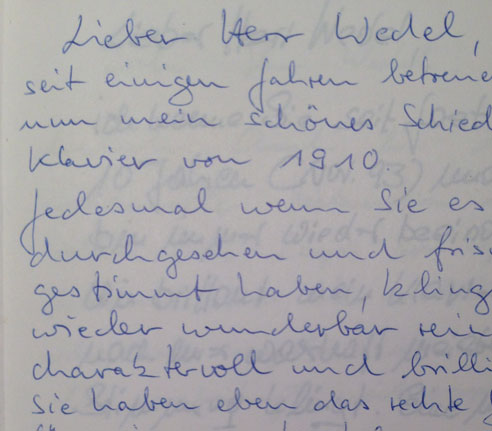 Lieber Herr Wedel,
seit einigen Jahren betreue
nun mein schönes Schied
Klavier von 1910.
Jedesmal wenn Sie es
durchgesehen und fris
gestimmt haben, kling
wieder wunderbar rein
charaktervoll und brilli
Sie haben eben das rechte